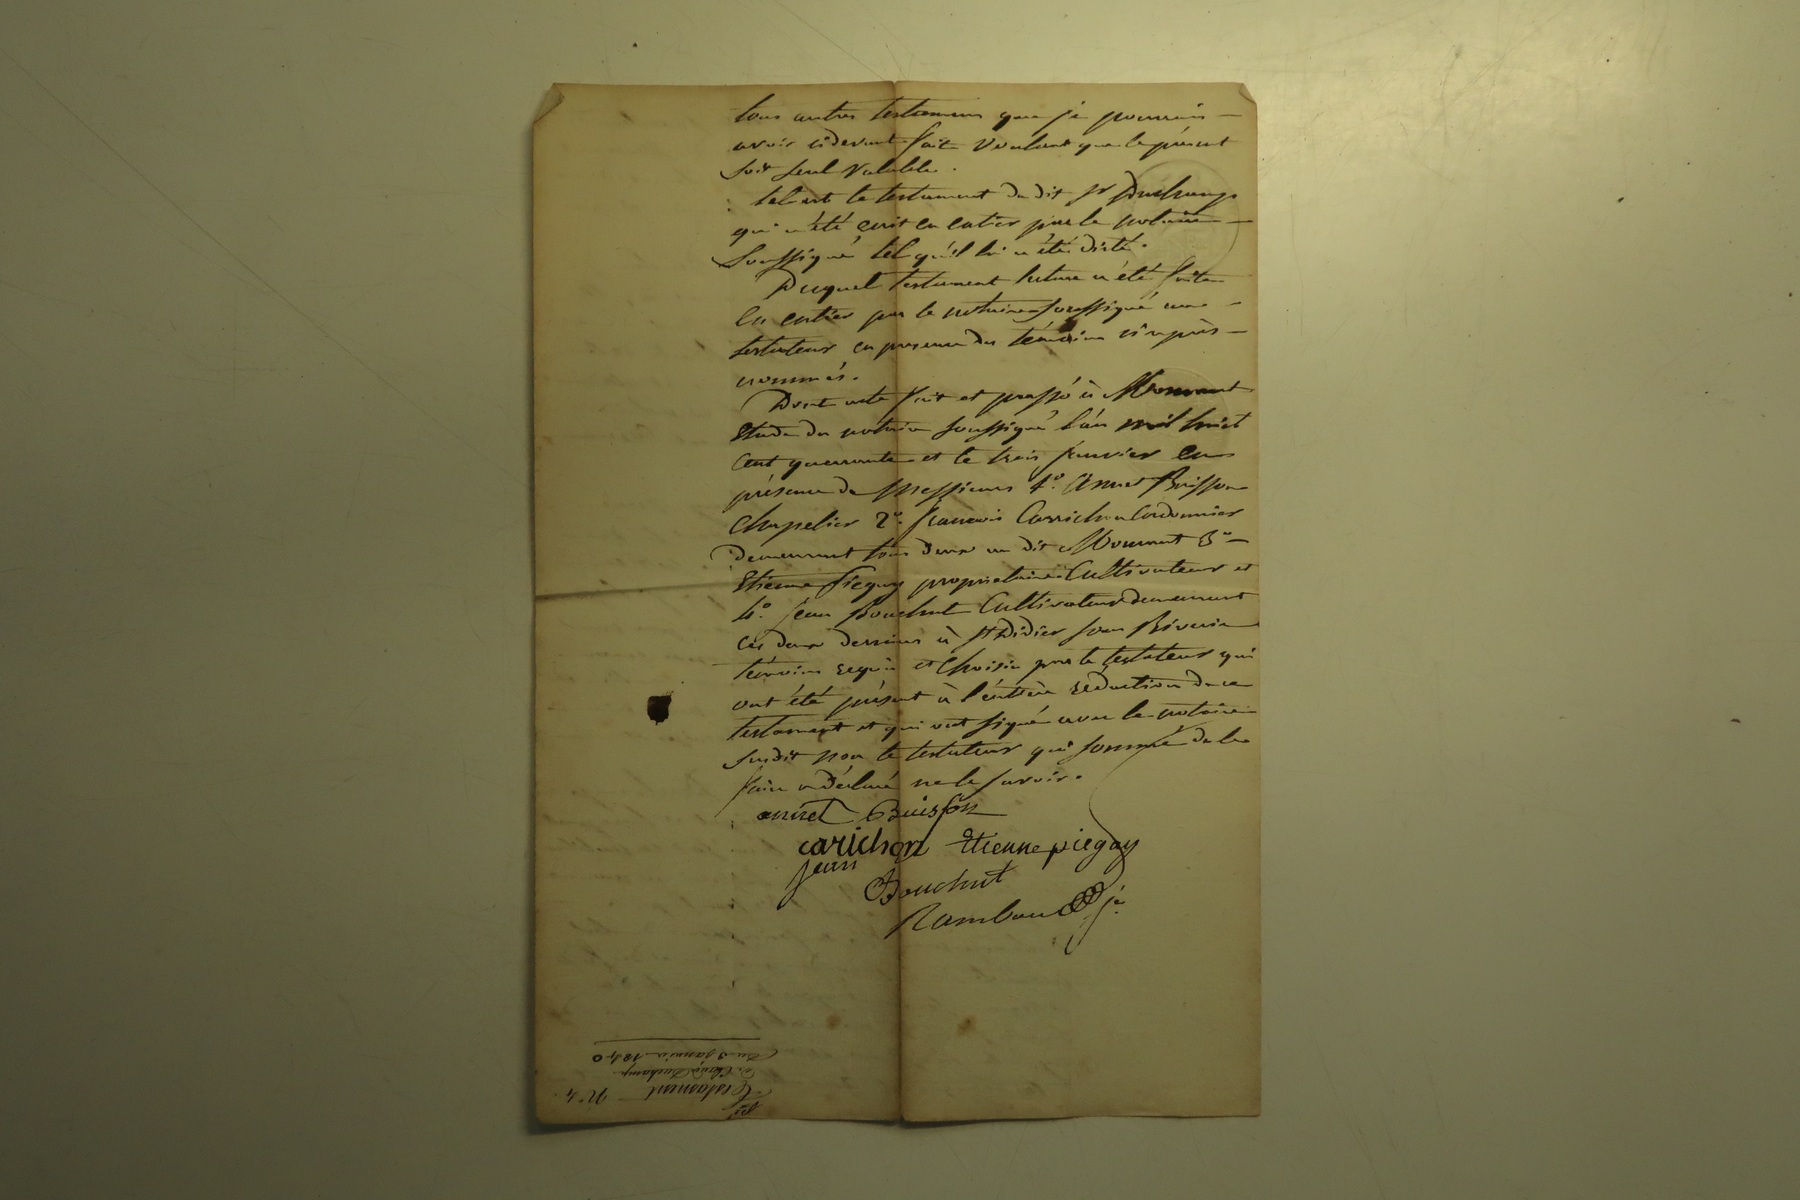 tous autres testamens que je pourrais
avoir cidevant fait voulant que le présent
soit seul valable.
tel est le testament du dit Sr Duchamp
qui a été écrit en entier par le notaire
soussigné tel qu'il lui a été dicté.
Duquel testament lecture a été faite
en entier par le notaire soussigné au
testateur en presence des témoins ci après
nommés.
Dont acte fait et passé à Mornant
Etude du notaire soussigné l'an mil huit
cent quarante et le trois janvier en
présence de Messieurs 1º. Annet Buisson
Chapelier 2º. françois Carrichon Cordonnier
demeurant tous deux au dit Mornant 3º
Etienne Piegay propriétaire Cultivateur et
4º. Jean Bouchut Cultivateur demeurant
ces deux derniers à St Didier sous Riverie
témoins requis et choisis par le testateur qui
ont été présent à l'entière rédaction de ce
testament et qui ont signé avec le notaire
susdit non le testateur qui sommé de le
faire a déclaré ne le savoir.
annet Buisson
carichon Etienne piegay
jean
Bouchut
Rambaud
du 3 janvier 1840
Duchamp
Testament Nº 4